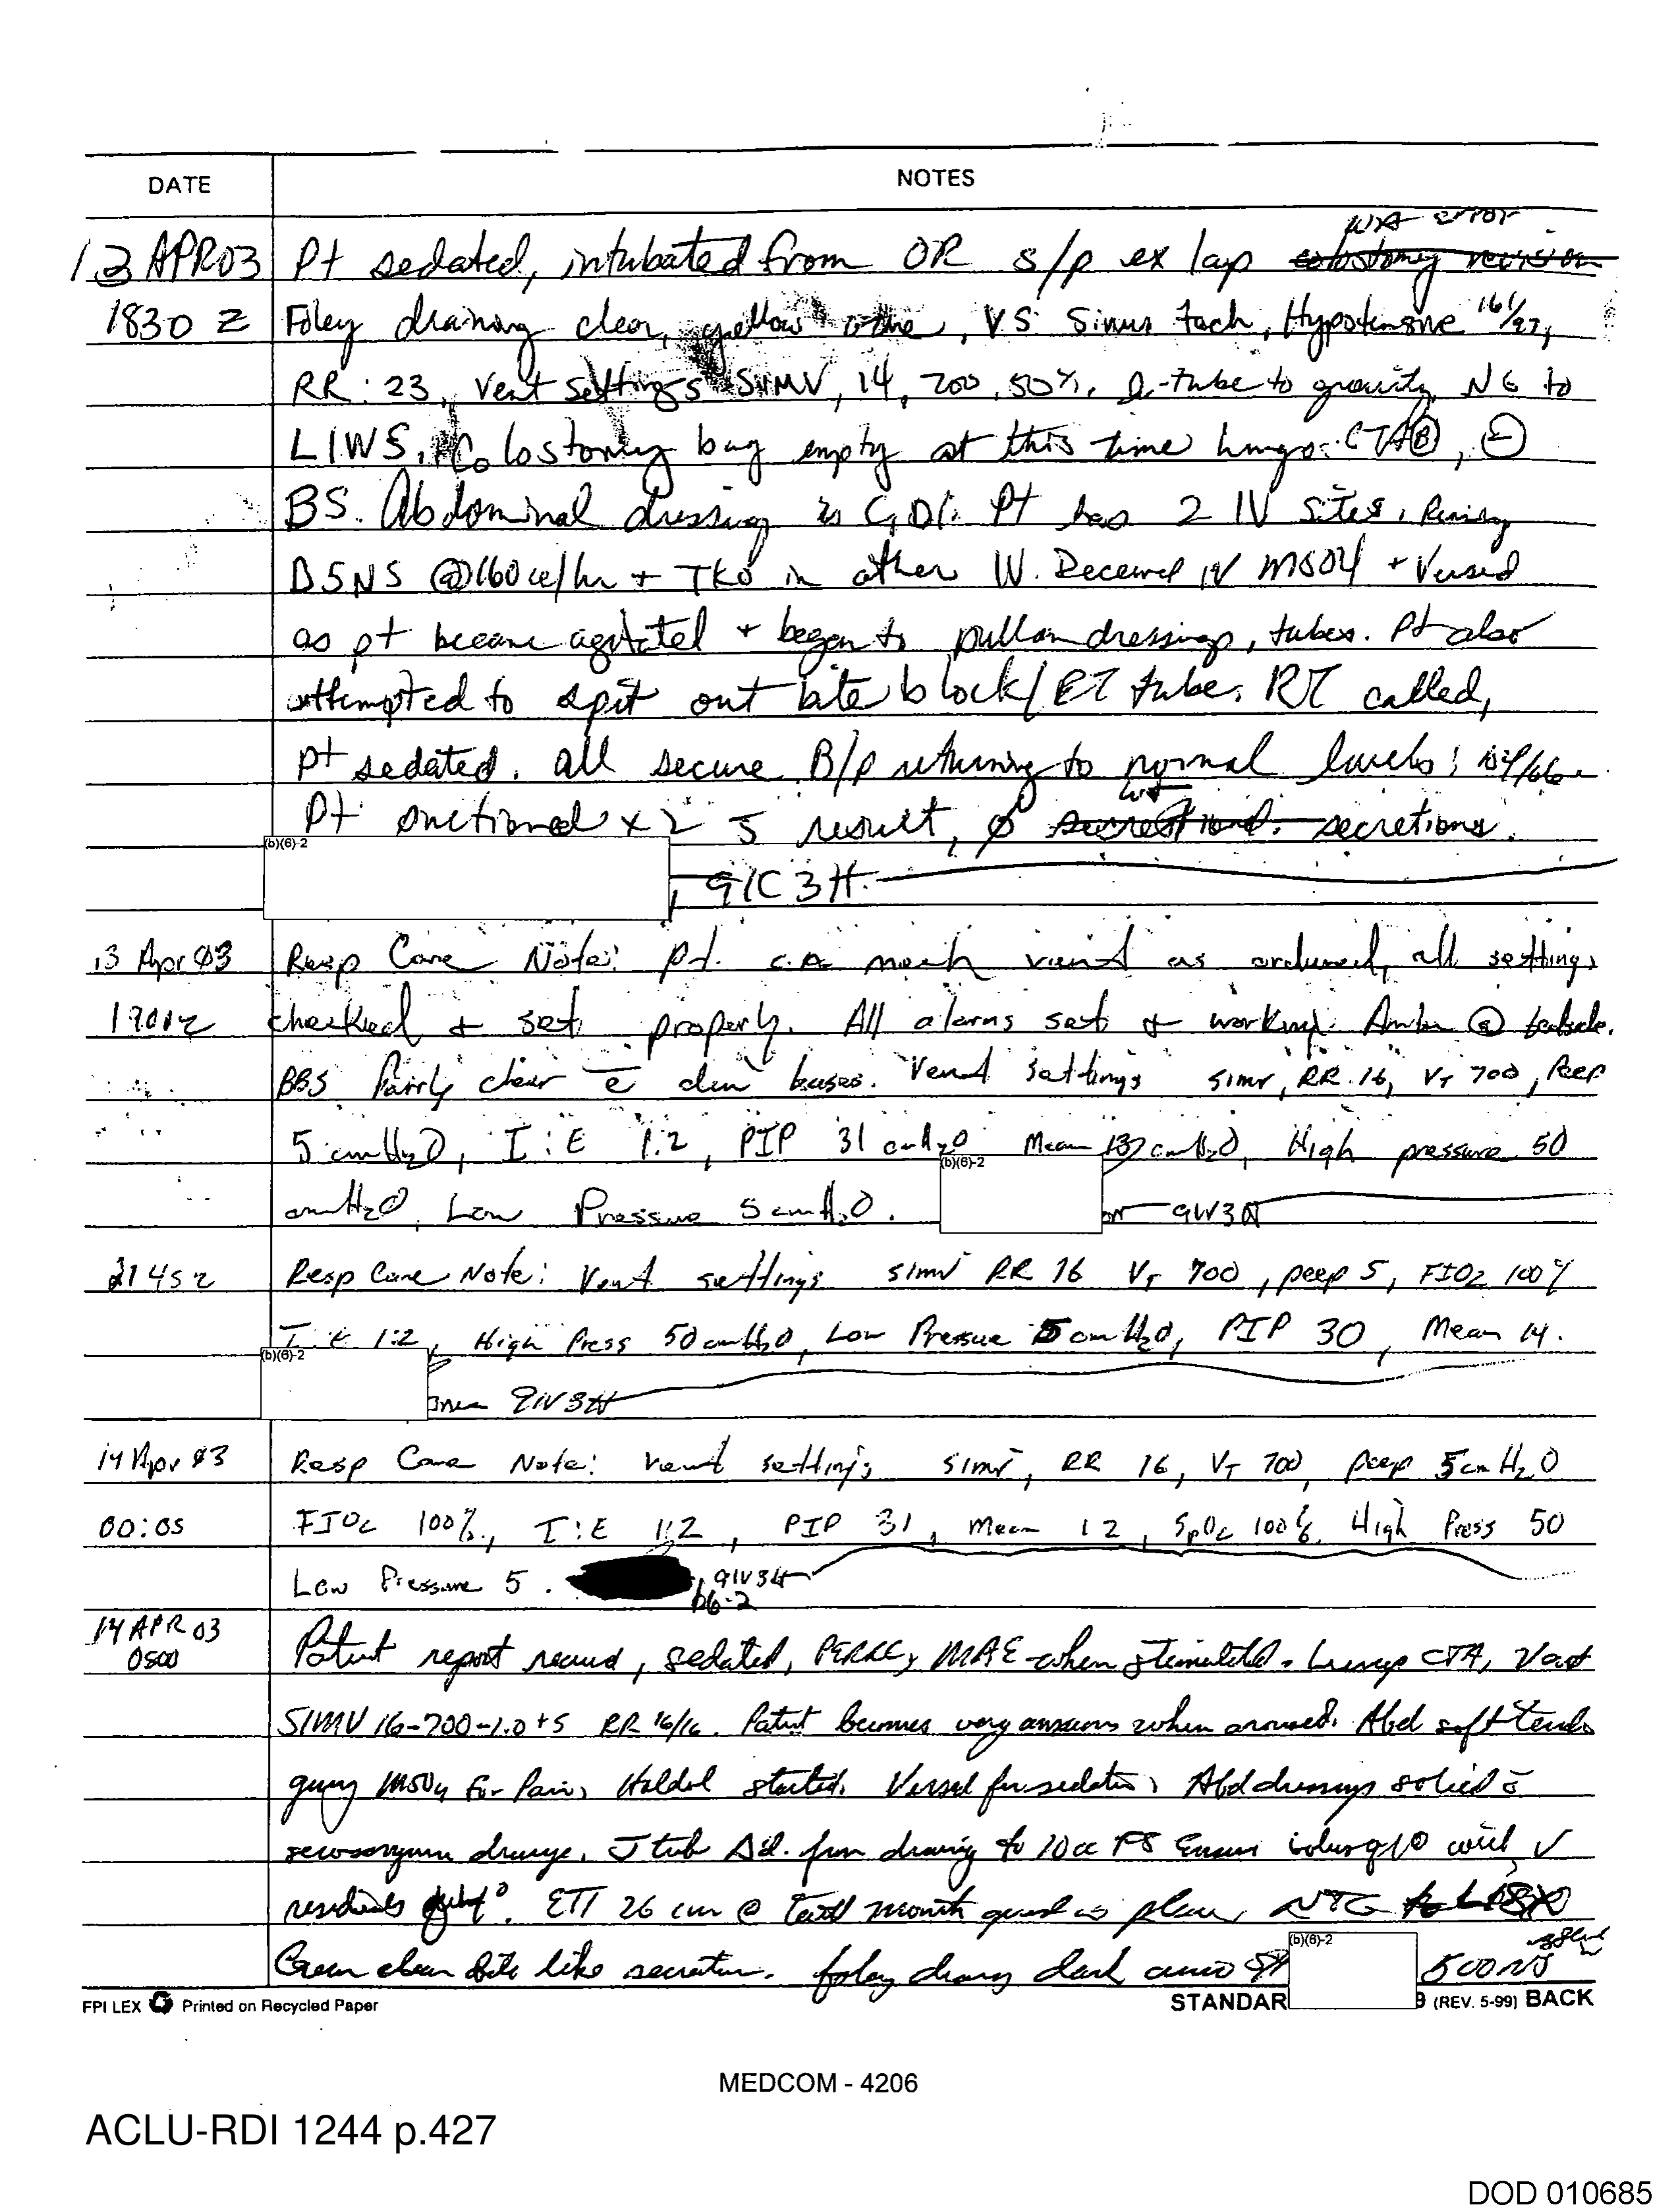 DATE NOTES
error
13 APR03 Pt sedated, intubated from OR s/p ex lap colostomy revision
1830 Z Foley draining clear, yellow urine, VS: Sinus tach, Hypotensive 161/97,
RR: 23, Vent settings SIMV, 14, 700, 50%. tube to gravity, NG to
LIWS. Colostomy bag empty at this time lungs: CTA Ⓑ, ⊖
BS. Abdominal dressing is CDI. Pt has 2 IV sites,
D5NS @160cc/hr + TKO in other IV. Received IV MSO4 + Versed
as pt became agitated + began to pull on dressings, tubes. Pt also
attempted to spit out bite block/ET tube. RT called,
pt sedated. All secure. B/p returning to normal levels; /66.
Pt suctioned x2 s̄ result, ø secretions.
(b)(6)-2
, 91C3H.
13 Apr 03 Resp Care Note: pt. mech vent as ordered, all settings
1901z checked + set properly. All alarms set + working. Ambu @ bedside.
BBS fairly clear c̄ dim bases. Vent settings SIMV, RR 16, VT 700, Peep
5 cmH2O, I:E 1:2, PIP 31 cmH2O Mean cmH2O, High pressure 50
(b)(6)-2
cmH2O, Low Pressure 5 cmH2O.
2145z Resp Care Note: Vent settings SIMV RR 16 VT 700, peep 5, FIO2 100%
I:E 1:2, High Press 50 cmH2O, Low Pressure 5 cmH2O, PIP 30, Mean 14.
(b)(6)-2
14 Apr 03 Resp Care Note: vent settings SIMV, RR 16, VT 700, peep 5cm H2O
00:05 FIO2 100%, I:E 1:2, PIP 31, Mean 12, SpO2 100%. High Press 50
Low Pressure 5. , 91V3H
b6-2
14 APR 03 Patient report received, sedated, PERRL, MAE when stimulated. Lungs CTA, Vent
0500
SIMV 16-700-1.0+5 RR 16/16. Patient becomes very anxious when aroused. Abd soft tender
giving MSO4 for Pain, Haldol started. Versed for sedation, Abd dressings soiled c̄
drainage. J tube from draining to 10cc FS with √
residuals. ETT 26 cm @ teeth mouth guard in place, NTG
Green clear bile like secretion. foley draining dark
(b)(6)-2
FPI LEX Printed on Recycled Paper STANDAR 9 (REV. 5-99) BACK
MEDCOM - 4206
ACLU-RDI 1244 p.427
DOD 010685